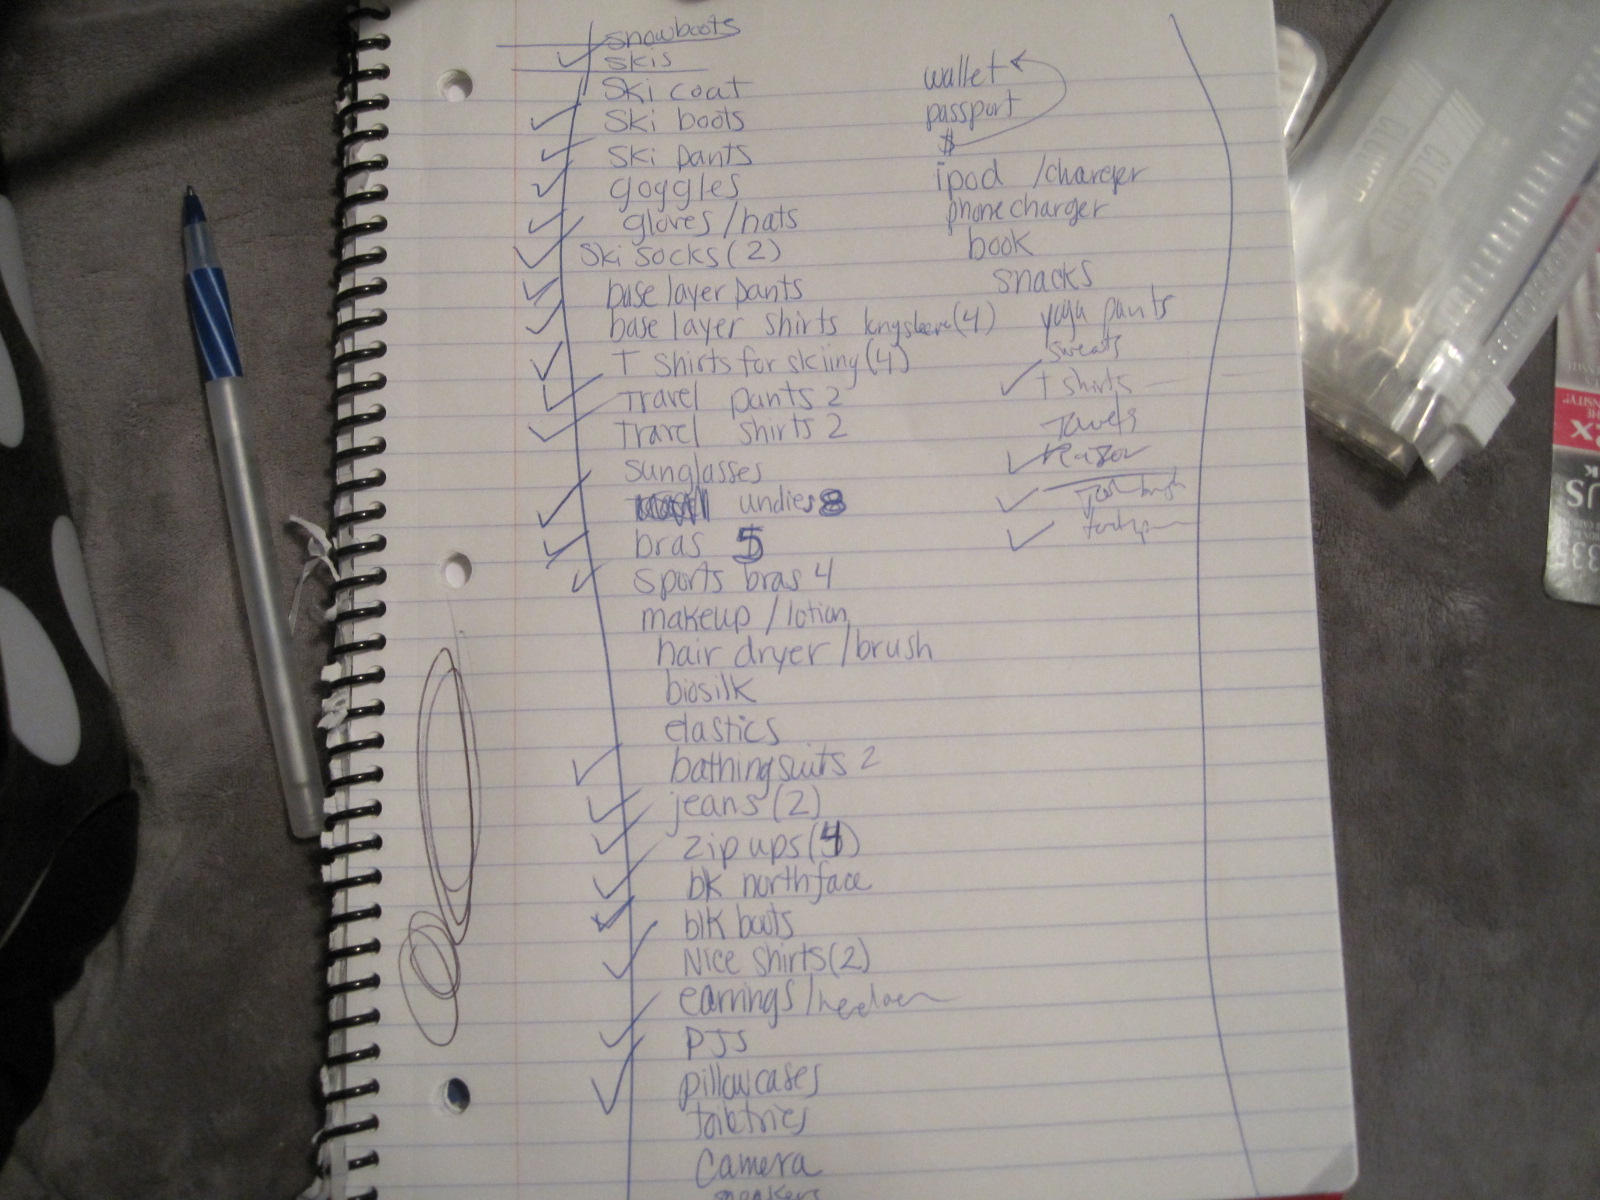 snowboots
skis
Ski coat
Ski boots
Ski pants
goggles
gloves/hats
Ski socks (2)
base layer pants
base layer shirts longsleeve (4)
T shirts for skiing (4)
Travel pants 2
Travel shirts 2
sunglasses
undies 8
bras 5
sports bras 4
makeup / lotion
hair dryer / brush
biosilk
elastics
bathingsuits 2
jeans (2)
zip ups (4)
bk northface
blk boots
Nice shirts (2)
earrings /
PJS
pillowcases
Camera
sneakers
wallet
passport
$
ipod / charger
phone charger
book
snacks
yoga pants
sweats
t shirts
Towels